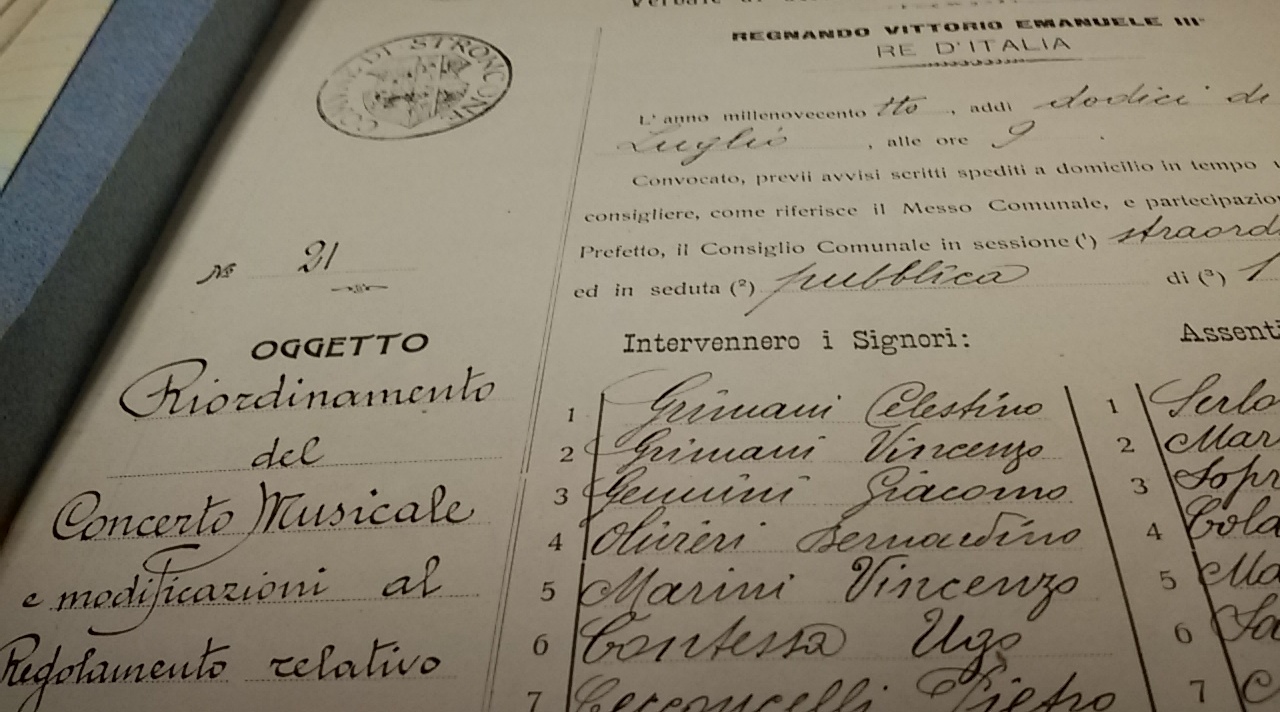 Verbale di
REGNANDO VITTORIO EMANUELE III°
RE D'ITALIA
COMUNE DI STRONCONE
L'anno millenovecento tto, addì dodici di
Luglio, alle ore 9.
Convocato, previi avvisi scritti spediti a domicilio in tempo
consigliere, come riferisce il Messo Comunale, e partecipazio
Prefetto, il Consiglio Comunale in sessione (¹) straord
ed in seduta (²) pubblica di (³) 1
N° 21
OGGETTO
Riordinamento
del
Concerto Musicale
e modificazioni al
Regolamento relativo
Intervennero i Signori:
1 Grimani Celestino
2 Grimani Vincenzo
3 Gemini Giacomo
4 Olivieri Bernardino
5 Marini Vincenzo
6 Contessa Ugo
7 Cecconcelli Pietro
Assenti
1 Serlo
2 Mar
3 Sopr
4 Cola
5 Ma
6 Sa
7 C